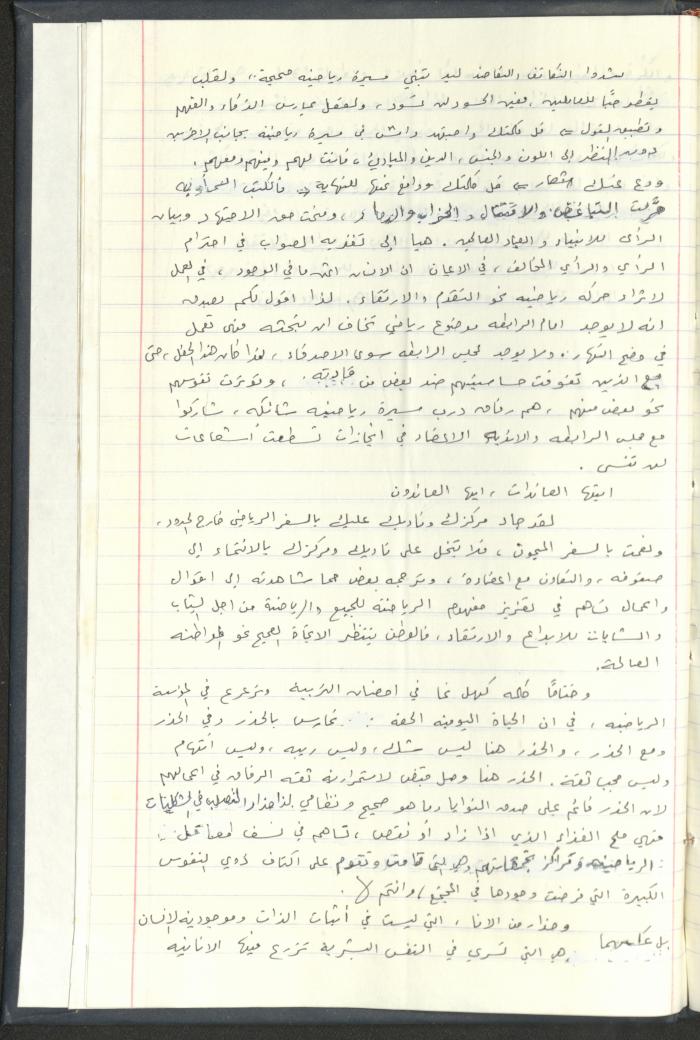 لشدوا التكاتف والتعاضد لبد تبني مسيرة رياضية صحيحة، ولقلب
يقطر حبًا للعاملين، فعين الحسود لن تسود، ولعقل يمارس الذكاء والفهم
وتطبيق لقول = قل كلمتك واجتهد وامش في مسيرة رياضية بجانب الاخرين
دون النظر إلى اللون والجنس، الدين والمبادئ، فأنت لهم ومنهم ومعهم،
ودع عنك = قل كلمتك ودافع عنها للنهاية = فالكتب السماوية
حرّمت التباغض والاقتتال و الخراب والدمار، ومنحت حق الاجتهاد وبيان
الرأي للانبياء و العباد الصالحين. هيا إلى تغذية الصواب في احترام
الرأي والرأي المخالف، في الايمان ان الانسان اثمن ما في الوجود، في العمل
لاثراء حركة رياضية نحو التقدم والارتقاء. لذا اقول لكم بصدق
انه لا يوجد امام الرابطه موضوع رياضي تخاف ان تبحثه فهي تعمل
في وضح النهار. ولا يوجد لمجلس الرابطه سوى الاصدقاء، لهذا كان هذا الحفل، حتى
مع الذين تفوقت حساسيتهم ضد بعض من ، وتوترت نفوسهم
نحو بعض منهم، هم رفاق درب مسيرة رياضية شائكه، شاركوا
مع مجلس الرابطه والانديه الاعضاء في انجازات تسطعت اشعاعات
لن تنسى.
ايتها العائدات، ايها العائدون
لقد جاد مركزك وناديك عليك بالسفر الرياضي خارج الحدود،
ونعمت بالسفر الميمون، فلا تبخل على ناديك ومركزك بالانتماء إلى
صفوفه، والتعاون مع اعضاءه، وترجمه بعض مما شاهدته إلى اقوال
واعمال تساهم في تعزيز مفهوم الرياضة للجميع والرياضة من اجل الشباب
والشابات للابداع والارتقاء، فالوطن ينتظر الاتجاه الصحيح نحو المواطنه
الصالحة.
وختامًا كلمه كهل نما في احضان التربية وترعرع في المؤسسة
الرياضيه، في ان الحياة اليوميه الحقه تمارس بالحذر وفي الحذر
ومع الحذر، والحذر هنا ليس شك، وليس ريبه، وليس اتهام
وليس حجب ثقة. الحذر هنا وصل مقبض لاستمرارية ثقه الرفاق في اعمالهم
لان الحذر قائم على صدق النوايا وما هو صحيح ونظامي لذا حذار التصلب في الشكليات
فهي ملح الغذاء الذي اذا زاد أو نقص، تساهم في نسف
الرياضيه ومراكز تجمعاتهم وهي التي قامت وتقوم على اكتاف ذوي النفوس
الكبيرة التي فرضت وجودها في المجتمع، وانتم لا.
وحذار من الانا، التي ليست في أثبات الذات وموجودية لانسان
بل عكسهما هي التي تسري في النفس البشرية تزرع فيها الانانيه